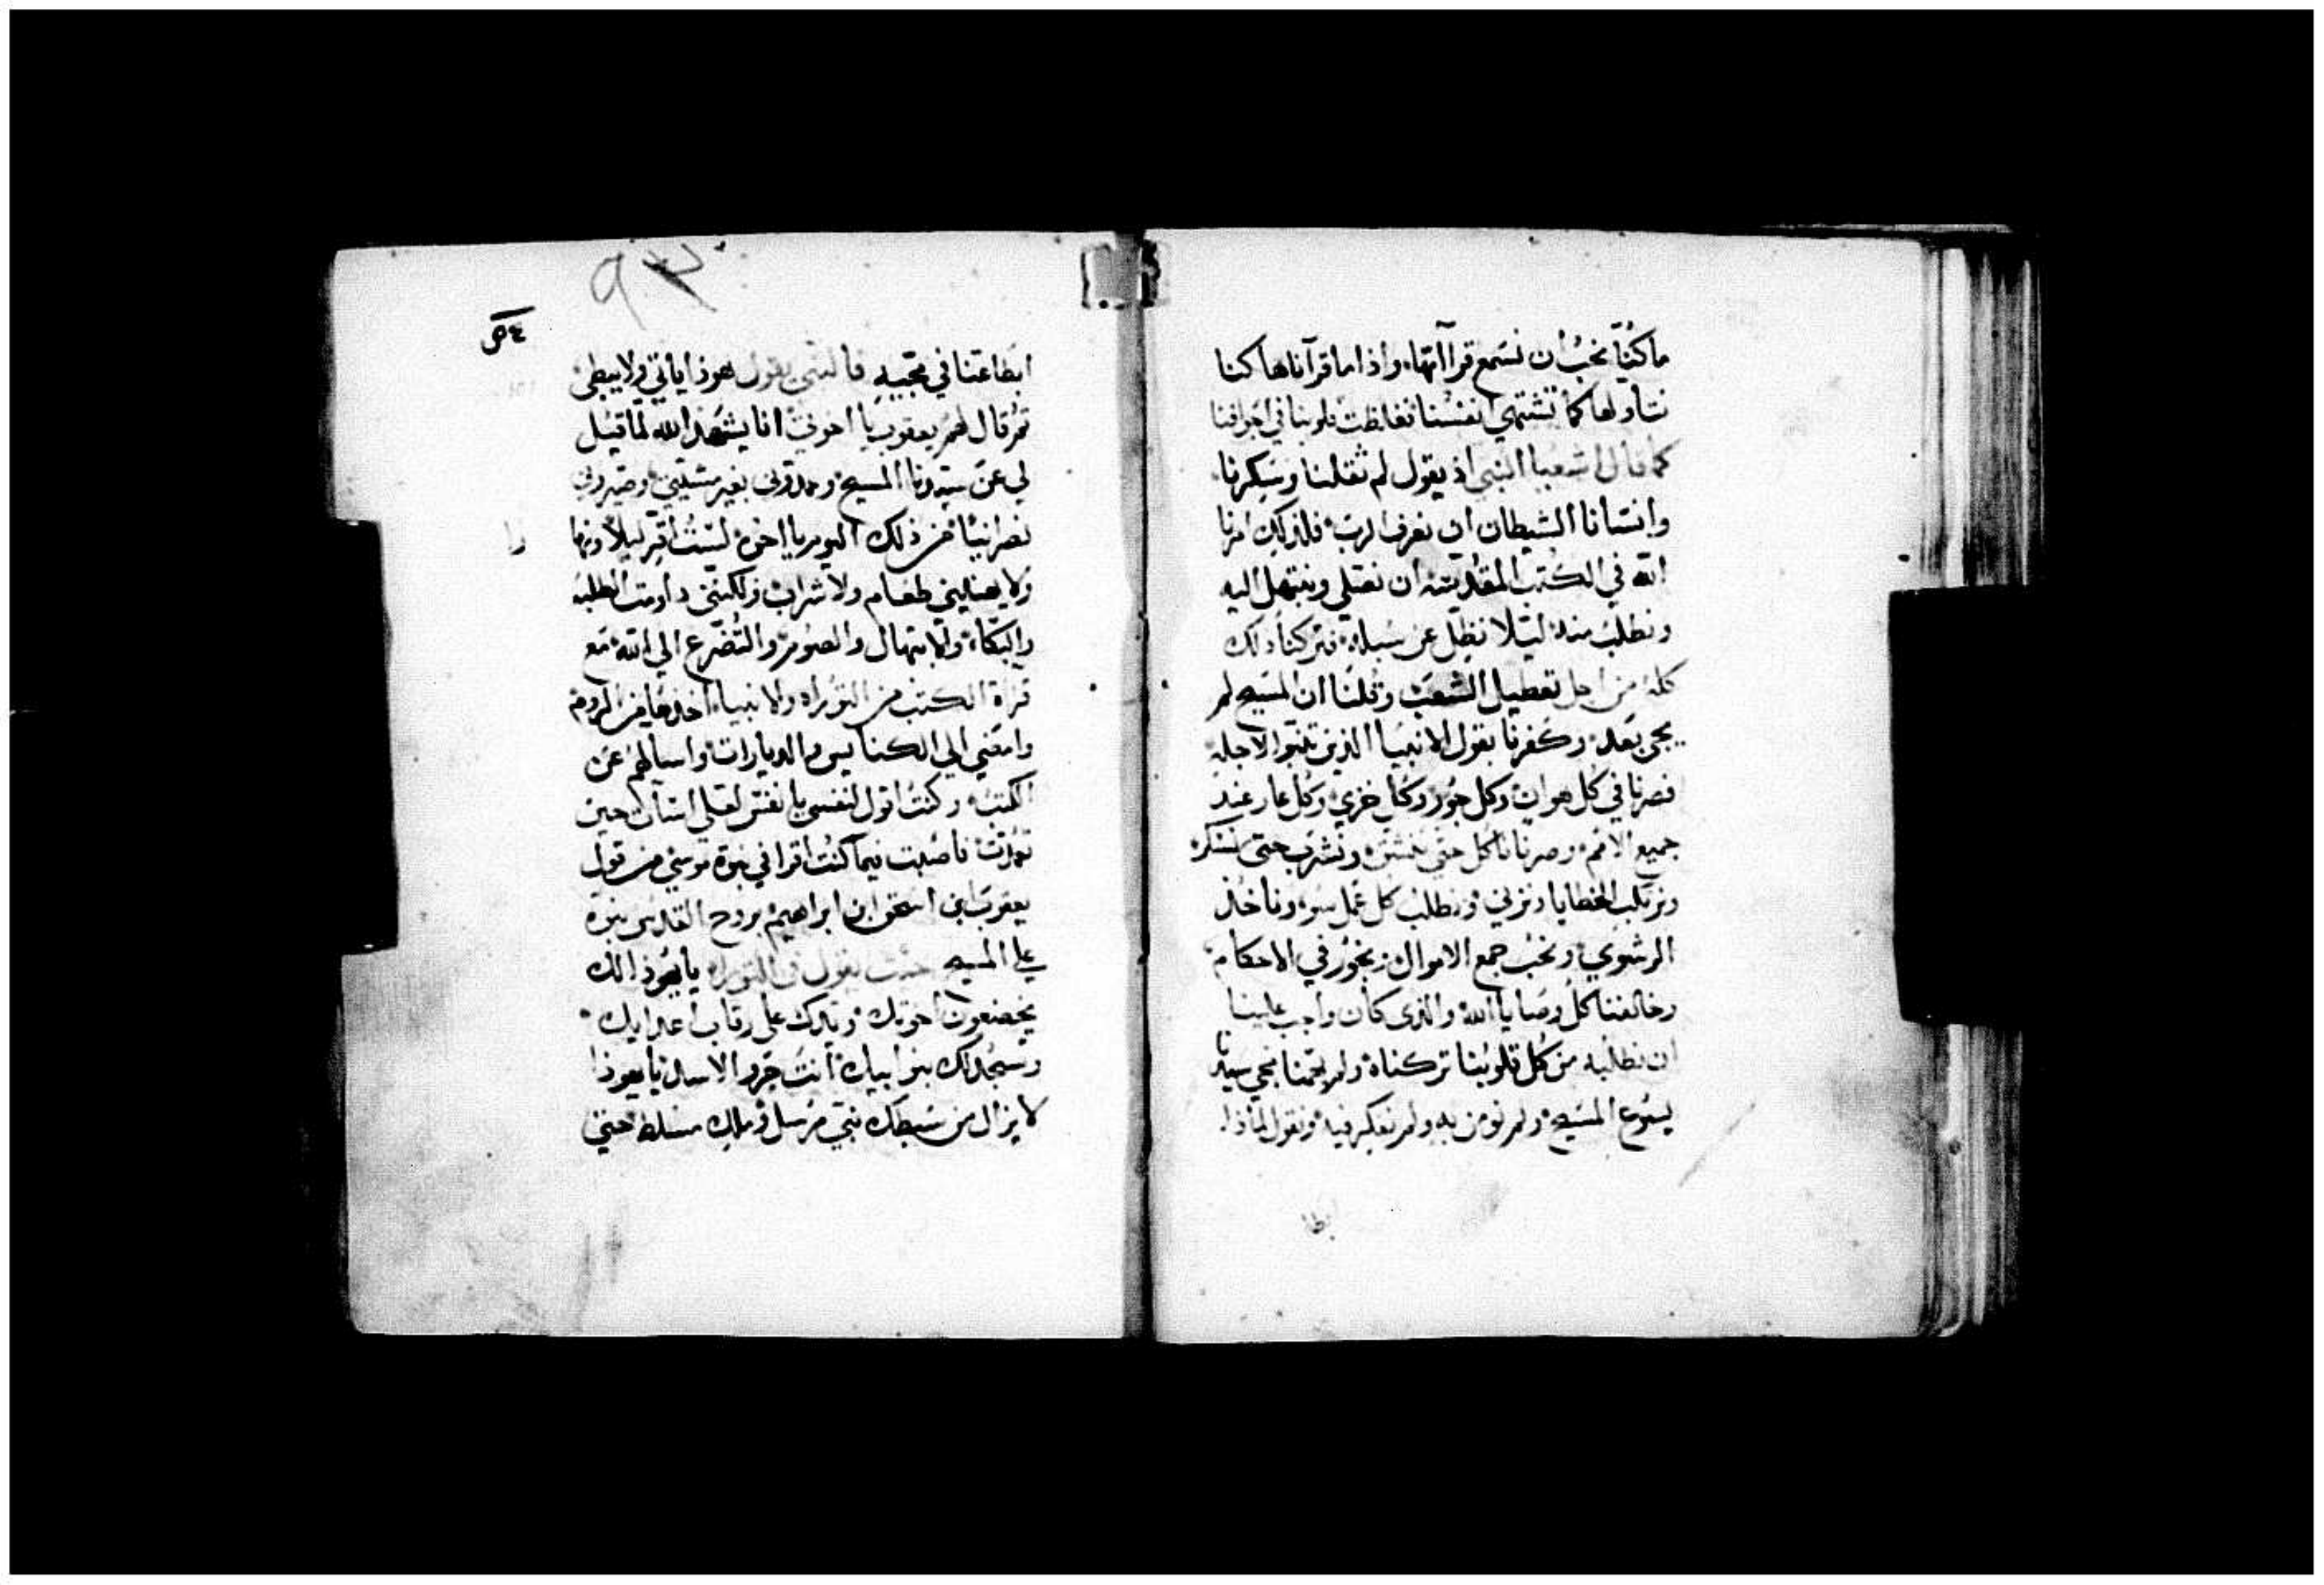 ما كنا نحب ان نسمع قراآتها، واذا ما قرآناها كنا
نتاولها كما تشتهي انفسنا فغلظت قلوبنا في اجوافنا
كما قال اشعيا النبي اذ يقول لم تقلنا وسكرنا
وانسانا الشيطان ان نعرف الرب، فلذلك امرنا
الله في الكتب المقدسه ان نصلي ونبتهل اليه
ونطلب منه ليلا نظل عن سبله، فتركنا ذلك
كله من اجل تعطيل الشعب وقلنا ان المسيح لم
يجي بعد، وكفرنا بقول الانبيا الذين تنبوا لاجله
فصرنا في كل هوان وكل جور وكل خزي وكل عار عند
جميع الامم، وصرنا ناكل حتى ونشرب حتى نسكر
ونرتكب الخطايا ونزني ونطلب كل عمل سو، وناخذ
الرشوي ونحب جمع الاموال ونجور في الاحكام
وخالفنا كل وصايا الله والذى كان واجب علينا
ان نطلبه من كل قلوبنا تركناه ولم بمجي سيدنا
يسوع المسيح ولم نومن به ولم نفكر فيه ونقول لماذا
ابطا
٩٣
ابطا عنا في مجييه فالنبي يقول هوذا ياتي ولا يبطي
ثم قال لهم يعقوب يا اخوتي انا يشهد الله لما قيل
لي عن سيدنا المسيح وعمدوني بغير مشيتي وصيروني
نصرانيا من ذلك اليوم يا اخوه لست اقر ليلا ونهارا
ولا يهنيني طعام ولا شراب ولكنني داومت الطلبه
والبكاء والابتهال والصوم والتضرع الي الله مع
قراة الكتب من التوراه والانبياء اخذها من الروم
وامضي الي الكنايس والديارات واسالهم عن
الكتب وكنت اقول لنفسي يا نفس لعلي اسات حين
تعمدت فاصبت فيما كنت اقرا في نبوة موسي من قول
يعقوب ابن اسحق ابن ابراهيم بروح القدس بنبوة
على المسيح حيث يقول في التوراه يا يهوذا لك
يخضعون اخوتك ويدك على رقاب اعدايك
وتسجد لك بنو ابيك انت جرو الاسد يا يهوذا
لا يزال من سبطك نبي مرسل وملك مسلط حتي